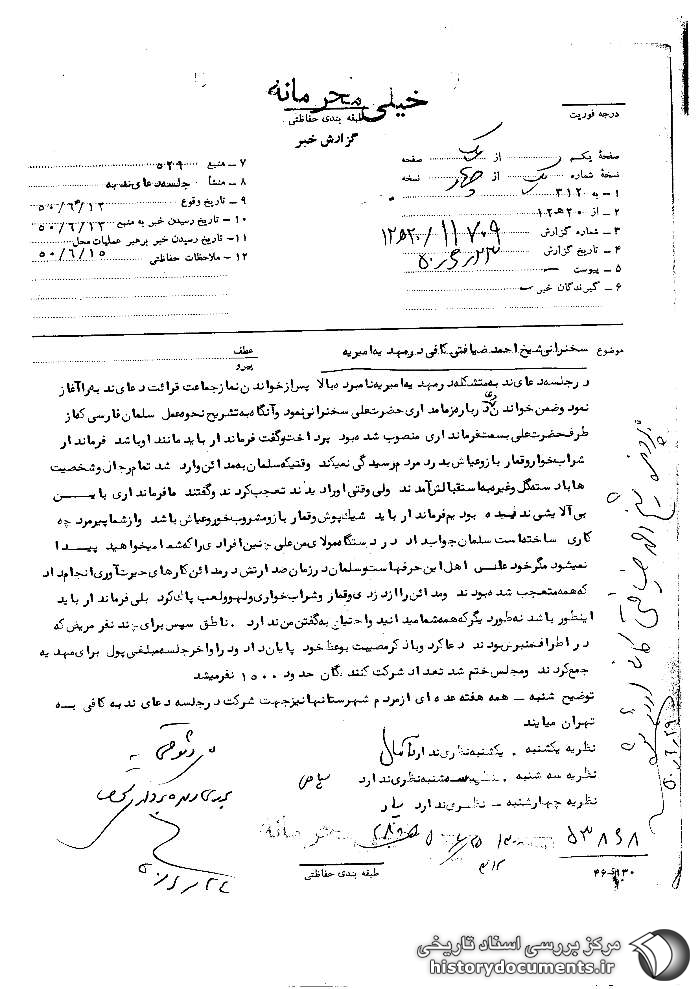 خیلی محرمانه
طبقه بندی حفاظتی
گزارش خبر
درجه فوریت
صفحهٔ یکم از یک صفحه
نسخهٔ شماره یک از چهار نسخه
۱ – به ۳۱۲
۲ – از ۲۰ ه ۱۲
۳ – شماره گزارش ۱۱۷۰۹/ ۱۲ه۲۰
۴ – تاریخ گزارش
۵ – پیوست
۶ – گیرندگان خبر
۷ – منبع ۵۲۹
۸ – منشأ جلسه دعای ندبه
۹ – تاریخ وقوع ۵۰/۶/۱۲
۱۰ – تاریخ رسیدن خبر به منبع ۵۰/۶/۱۲
۱۱ – تاریخ رسیدن خبر برهبر عملیات محل ۵۰/۶/۱۵
۱۲ – ملاحظات حفاظتی
موضوع سخنرانی شیخ احمد ضیافتی کافی در مهدیه امیریه
عطف
پیرو
در جلسه دعای ندبه متشکله در مهدیه امیریه نامبرده بالا پس از خواندن نماز جماعت قرائت دعای ندبه را آغاز
نمود وضمن خواندن دعا درباره زمامداری حضرت علی سخنرانی نمود وآنگاه به تشریح نحوه عمل سلمان فارسی که از
طرف حضرت علی بسمت فرمانداری منصوب شده بود پرداخت وگفت فرماندار باید مانند او باشد فرماندار
شرابخوار وقمارباز وعیاش بدرد مردم رسیدگی نمیکند وقتیکه سلمان به مدائن وارد شد تمام رجال وشخصیت
ها با دسته گل وغیره به استقبالش آمدند ولی وقتی او را دیدند تعجب کردند وگفتند ما فرمانداری باین
بی آلایشی ندیده بودیم فرماندار باید شیک پوش وقمارباز ومشروب خور وعیاش باشد واز شما پیرمرد چه
کاری ساخته است سلمان جواب داد در دستگاه مولای من علی چنین افرادی را که شما میخواهید پیدا
نمیشود مگر خود علی اهل این حرفهاست وسلمان در زمان صدارتش در مدائن کارهای حیرت آوری انجام داد
که همه متعجب شده بودند ومدائن را از دزدی وقمار وشرابخواری ولهو ولعب پاک کرد بلی فرماندار باید
اینطور باشد نه طور دیگر که همه شما میدانید واحتیاج به گفتن من ندارد . ناطق سپس برای چند نفر مریض که
در اطراف منبر بودند دعا کرد وبا ذکر مصیبت بوعظ خود پایان داد ودر اواخر جلسه مبلغی پول برای مهدیه
جمع کردند ومجلس ختم شد تعداد شرکت کنندگان حدود ۱۵۰۰ نفر میشد
توضیح شنبه – همه هفته عده ای از مردم شهرستانها نیز جهت شرکت در جلسه دعای ندبه کافی به
تهران میایند
نظریه یکشنبه . یکشنبه نظری ندارد
نظریه سه شنبه . سه شنبه نظری ندارد
نظریه چهارشنبه – نظری ندارد
محرمانه
۵۳۸۶۸
۳۱۲
طبقه بندی حفاظتی
مرکز بررسی اسناد تاریخی
historydocuments.ir